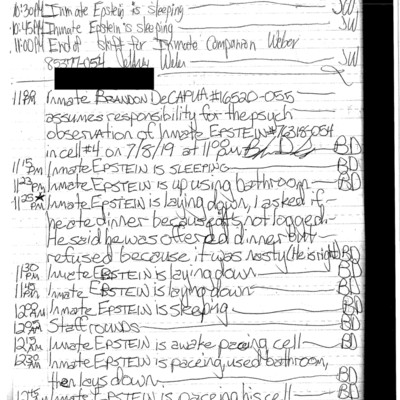 10:30PM Inmate Epstein is sleeping JW
10:45PM Inmate Epstein is sleeping JW
11:00PM End of shift for Inmate Companion Weber
85377-054 JW
11:00PM Inmate BRANDON DeCAPUA #16520-055
assumes responsibility for the psych
observation of Inmate EPSTEIN #76318-054
in cell #4, on 7/8/19 at 11:00pm BD
11:15PM Inmate EPSTEIN is SLEEPING BD
11:23PM Inmate EPSTEIN is up using bathroom BD
11:25PM* Inmate EPSTEIN is laying down, I asked if
he ate dinner because it's not logged.
He said he was offered dinner but
refused because it was nasty (He is right) BD
11:30PM Inmate EPSTEIN is laying down BD
11:45PM Inmate EPSTEIN is laying down BD
12:00AM Inmate EPSTEIN is sleeping BD
Staff rounds BD
12:15AM Inmate EPSTEIN is awake pacing cell BD
12:30AM Inmate EPSTEIN is pacing, used bathroom,
then lays down. BD
Inmate EPSTEIN is pacing his cell BD